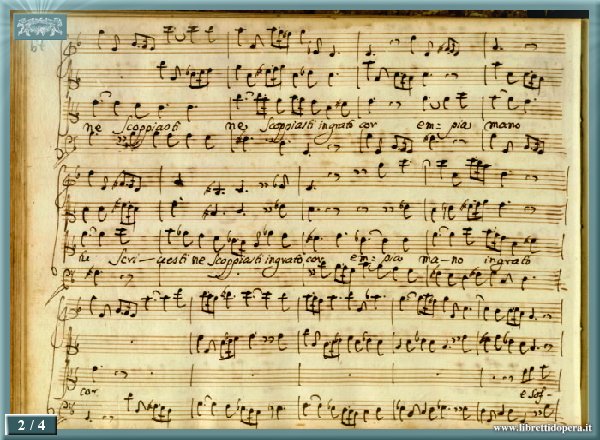 ne scoppiasti ne, scoppiasti ingrato cor em= pia mano
scri- vesti ne scoppiasti ingrato cor em= pia ma- no ingrato
cor e sof-
2 / 4
www.librettidopera.it